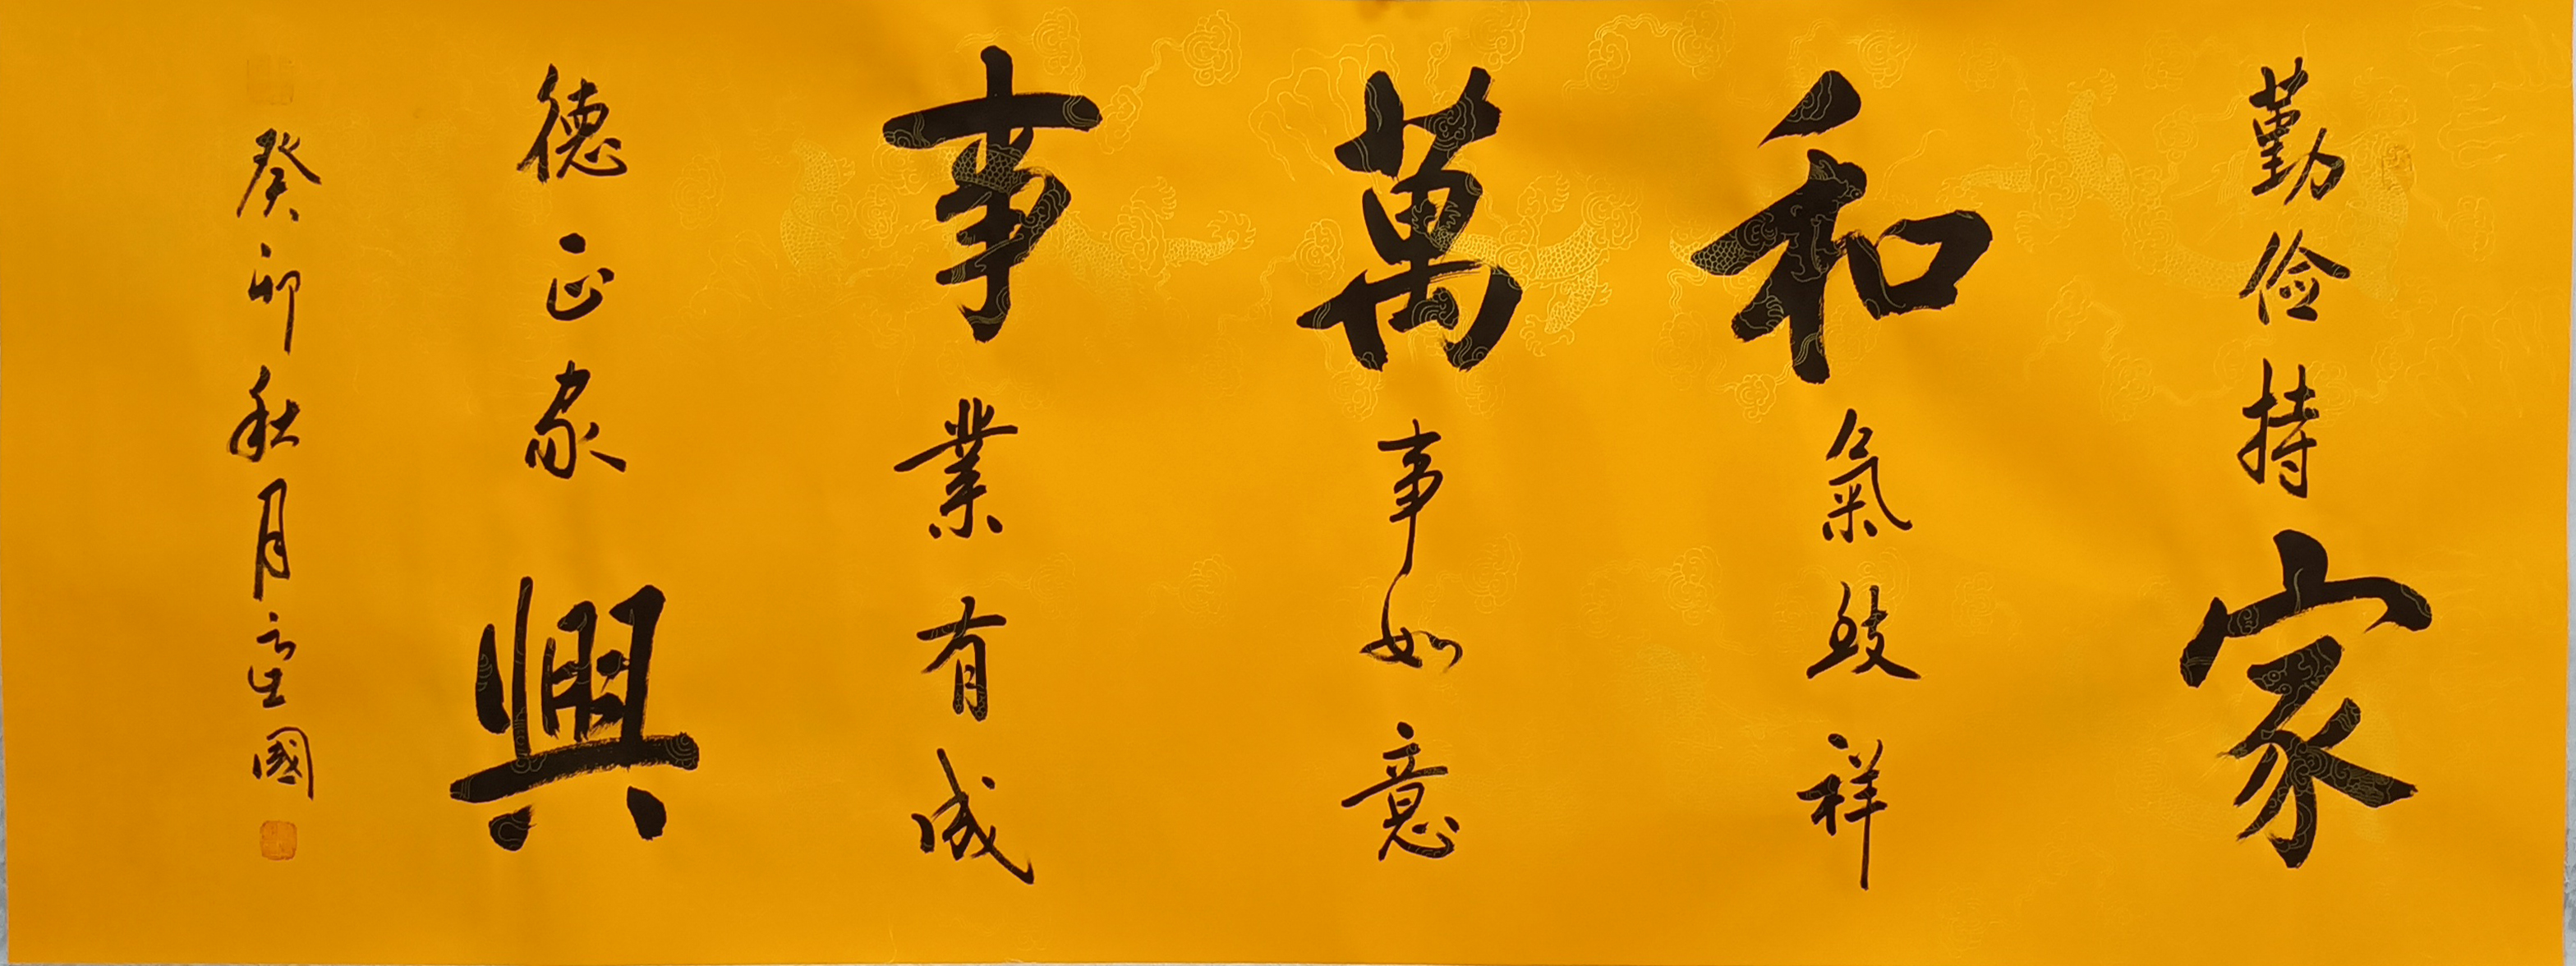 勤俭持家
和氣致祥
萬事如意
事業有成
德正家興
癸卯秋月
國